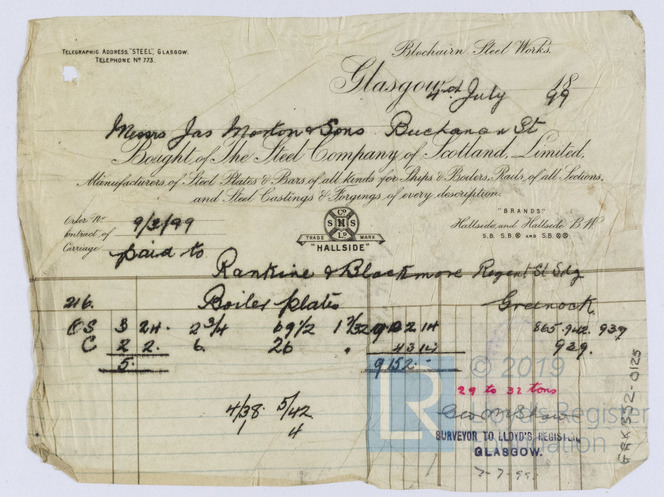 TELEGRAPHIC ADDRESS, "STEEL", GLASGOW.
TELEPHONE Nº 773.
Blochairn Steel Works.
Glasgow, 4th July 1899
Messrs Jas Morton & Sons Buchanan St
Bought of The Steel Company of Scotland, Limited,
Manufacturers of Steel Plates & Bars of all kinds for Ships & Boilers, Rails, of all Sections,
and Steel Castings & Forgings of every description.
Order Nº
Contract of 9/3/99
Carriage paid to
Co
S H S
Ld
TRADE MARK
"HALLSIDE"
"BRANDS"
Hallside and Hallside B.W
S.B. S.B. AND S.B.
Rankine & Blackmore Regent St Sdg
216. Boiler plates Greenock
S 3 24. 2 3/4 69 1/2 1 7/32 865.942.939
C 2 2. 6. 26 " 4 3 14 939.
5. 9 15 2 "
© 2019
Lloyd's Register
Foundation
LR
29 to 32 tons
4/38. 5/42
1 4
SURVEYOR TO LLOYD'S REGISTER
GLASGOW.
7-7-99
GRK-552-0125